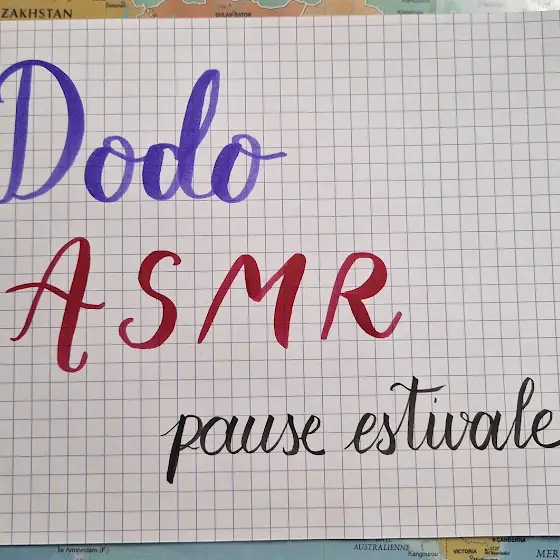 ZAKHSTAN
OULAN-BATOR
Dodo
ASMR
pause estivale
Île Amsterdam (F.)
AUSTRALIENNE
Kangourou
VICTORIA
CANBERRA
MER